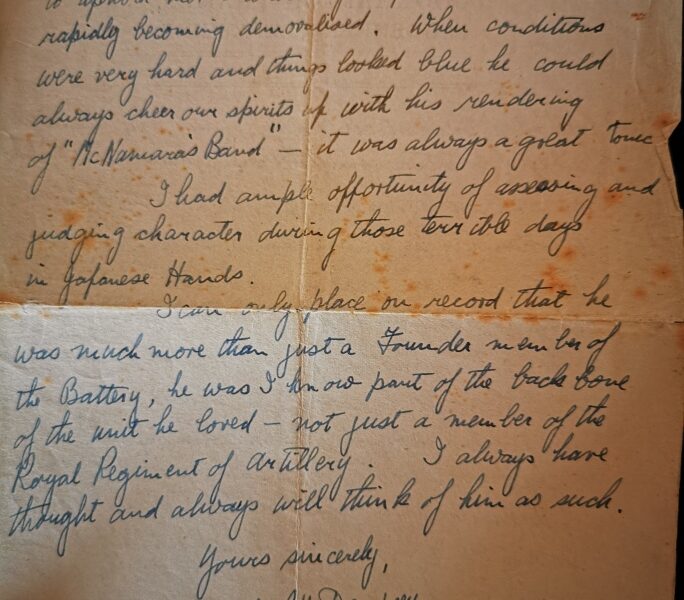 rapidly becoming demoralised. When conditions
were very hard and things looked blue he could
always cheer our spirits up with his rendering
of "McNamara's Band" — it was always a great tonic
I had ample opportunity of assessing and
judging character during those terrible days
in Japanese Hands.
I can only place on record that he
was much more than just a Founder member of
the Battery, he was I know part of the back bone
of the unit he loved — not just a member of the
Royal Regiment of Artillery. I always have
thought and always will think of him as such.
Yours sincerely,